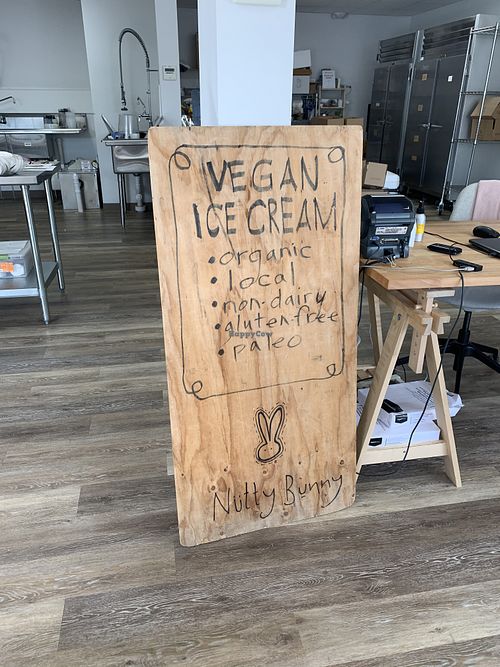 VEGAN
ICE CREAM
• organic
• local
• non-dairy
• gluten-free
• paleo
HappyCow
Nutty Bunny